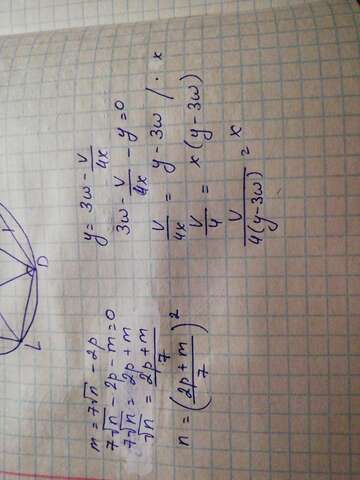 m = 7√n - 2p
7√n - 2p - m = 0
7√n = 2p + m
√n = \frac{2p + m}{7}
n = \left(\frac{2p + m}{7}\right)^2
y = 3w - \frac{v}{4x}
3w - \frac{v}{4x} - y = 0
\frac{v}{4x} = y - 3w / · x
\frac{v}{4} = x(y - 3w)
\frac{v}{4(y - 3w)} = x
D